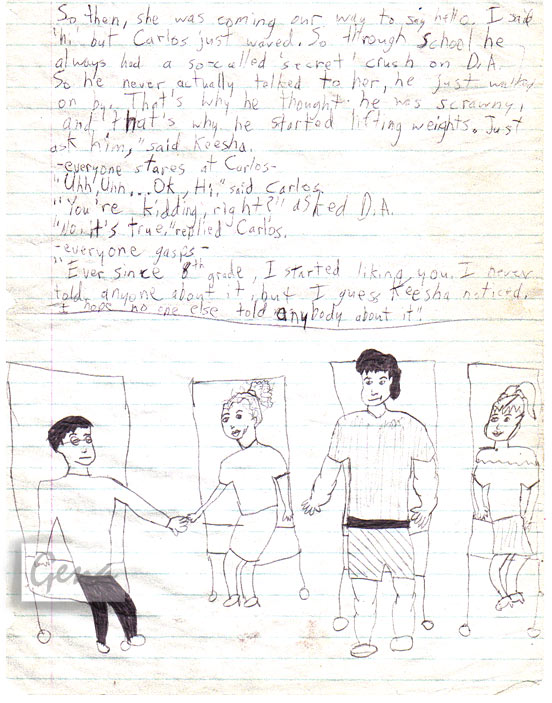 So then, she was coming our way to say hello. I said
"hi" but Carlos just waved. So through school he
always had a so called 'secret' crush on D.A.
So he never actually talked to her, he just walked
on by. That's why he thought he was scrawny,
and that's why he started lifting weights. Just
ask him," said Keesha.
-everyone stares at Carlos-
"Uhh, Uhh...Ok, Hi," said Carlos.
"You're kidding, right?" asked D.A.
"No it's true," replied Carlos.
-everyone gasps-
"Ever since 8th grade, I started liking you. I never
told anyone about it, but I guess Keesha noticed.
I hope no one else told anybody about it".
Gena